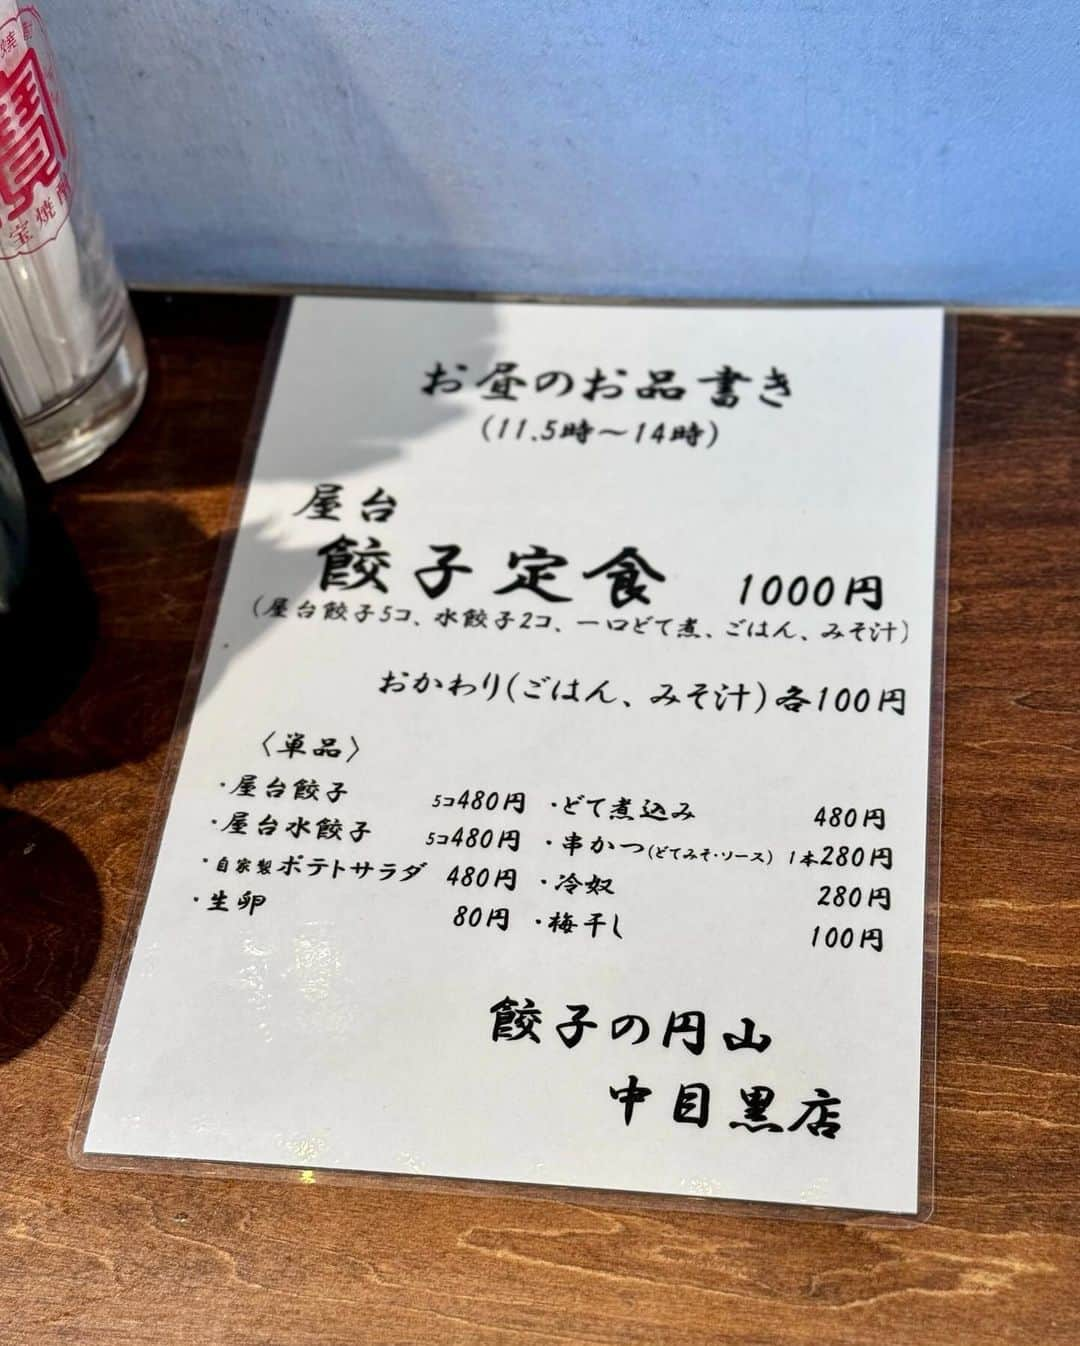 寶
宝焼酎
お昼のお品書き
(11.5時〜14時)
屋台
餃子定食 1000円
(屋台餃子5コ、水餃子2コ、一口どて煮、ごはん、みそ汁)
おかわり(ごはん、みそ汁)各100円
〈単品〉
・屋台餃子 5コ480円 ・どて煮込み 480円
・屋台水餃子 5コ480円 ・串かつ(どてみそ・ソース) 1本280円
・自家製ポテトサラダ 480円 ・冷奴 280円
・生卵 80円 ・梅干し 100円
餃子の円山
中目黒店